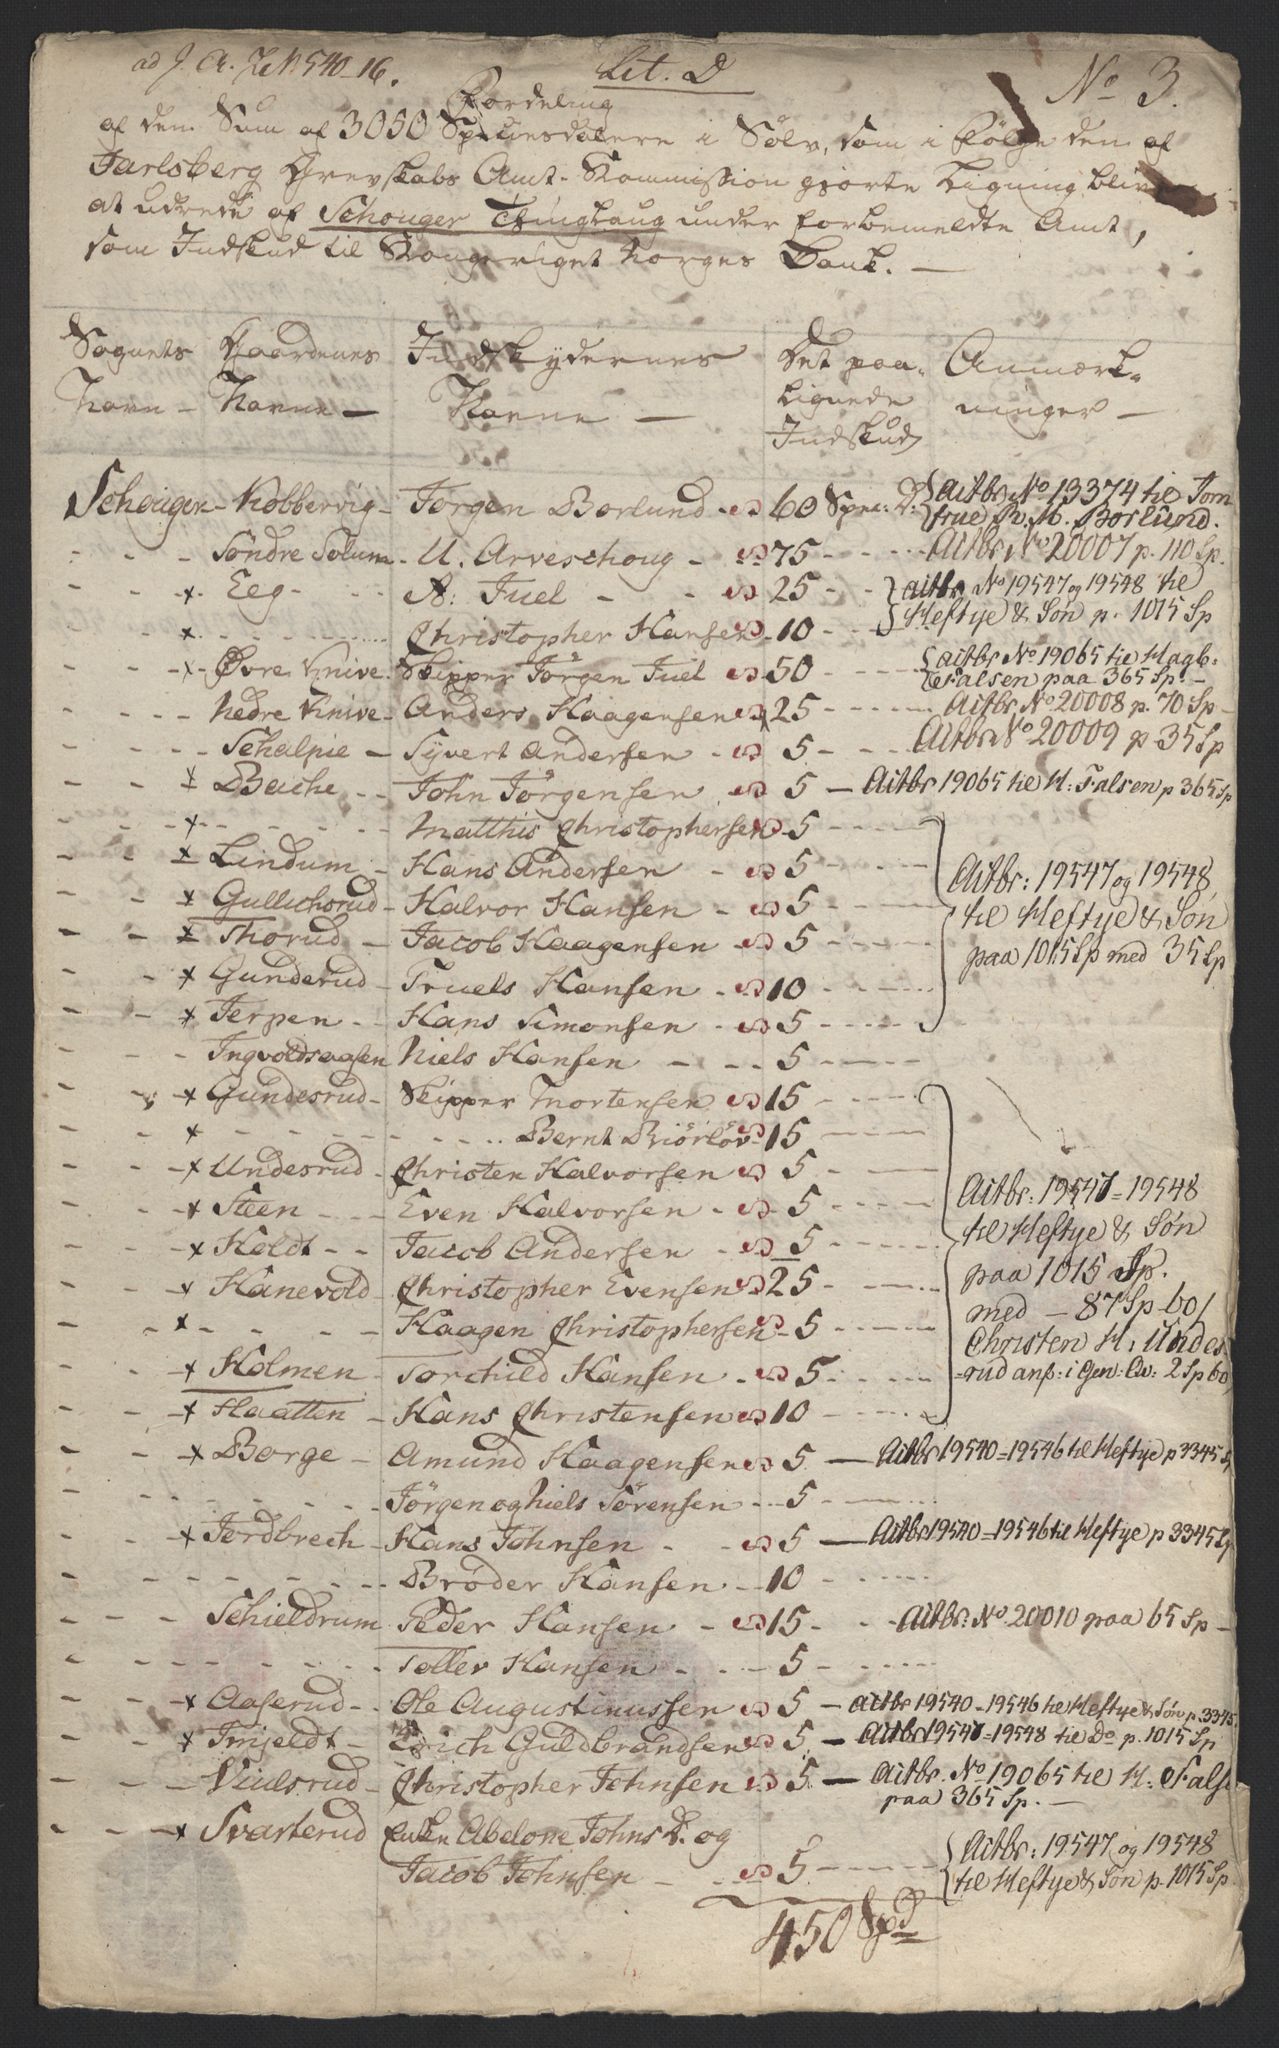 ad J. A. Z. N 540-16.
Lit. D
No 3.
Fordeling
af den Sum af 3050 Speciesdalere i Sølv, som i Følge den af
Jarlsberg Grevskabs Amt-Kommission gjorte Ligning bliver
at udrede af Schouger Thinglaug under forbemeldte Amt,
som Indskud til Kongeriget Norges Bank. —
Sognets Navn — Gaardenes Navne — Indskydernes Navne — Det paalignede Indskud Anmærkninger —
Schouger - Kobbervig - Jørgen Borlund - 60 Spec: D: Aitbr No 13374 til Jom
frue R. M. Borlund.
- - - Søndre Solum - U. Arveschoug - 75 - - - Aitbr No 20007 p. 110 Sp.
- - x Eeg - - A: Juel - - 25 - - Aitbr No 19547 og 19548 til
- - x - - - - Christopher Hansen - 10 - - - Heftye & Søn p. 1015 Sp
- - x Øvre Knive - Skipper Jørgen Juel 50 - - - Aitbr No 19065 til Hagb:
Falsen paa 365 Sp. —
- - - - Nedre Knive - Anders Haagensen 25 - - - Aitbr No 20008 p. 70 Sp -
- - - - Schalpie - Syvert Andersen - 5 - - Aitbr No 20009 p 35 Sp
- - x Bache - - John Jørgensen 5 — Aitbr 19065 til H: Falsen p 365 Sp
- - x - - - - Matthis Christophersen - 5 - - - -
- - x Lindum - Hans Andersen - 5 - - - - Aitbr: 19547 og 19548
- - x Gullichsrud - Halvor Hansen - 5 - - - - til Heftye & Søn
- - x Thorud - Jacob Haagensen - 5 - - - - paa 1015 Sp med 35 Sp
- - x Gunderud - Truels Hansen - 10 - - - -
- - x Jerpen - - Hans Simonsen - 5 - - - -
- - - - Ingvoldsaasen Niels Hansen - - - 5 - - -
- - x Gundesrud - Skipper Mortensen 15 - - - -
- - x - - - - - - - Bernt Biørløv 15 - - -
- - x Undesrud - Christen Halvorsen 5 - - - Aitbr: 19547 = 19548
- - x Steen - - - Even Halvorsen - 5 - - - til Heftye & Søn
- - x Holdt - - Jacob Andersen - 5 - - - paa 1015 Sp.
- - x Hanevold - Christopher Evensen 25 - - - med — 87 Sp 60/
- - x - - - - Haagen Christophersen - 5 - - - Christen H: Undes
- - x Holmen - Torchild Hansen - 5 - - - - rud anf: i Gen: Qv: 2 Sp 60
- - x Haatten - Hans Christensen 10 - - - -
- - x Borge - Amund Haagensen 5 — Aitbr 19540 = 19546 til Heftye p 3345 Sp
- - - - - - - Jørgen og Niels Sørensen - - 5 - - -
- - x Jordbrech - Hans Johnsen - - 5 — Aitbr 19540 = 19546 til Heftye p 3345 Sp
- - - - - - - Brøder Hansen - - 10 - - - -
- - - Schieldrum Peder Hansen - 15 - - - Aitbr: No 20010 paa 65 Sp -
- - - - - - - Toller Hansen - - - 5 - - - -
- - x Aaserud - Ole Augustinussen 5 — Aitbr 19540 - 19546 til Heftye & Søn p. 3345
- - x Imjeldt - Erich Guldbrandsen 5 — Aitbr 19547 = 19548 til Do p. 1015 Sp
- - - - Viulsrud - Christopher Johnsen 5 — Aitbr. No 19065 til H: False
paa 365 Sp. —
- - x Svarterud Enken Abelone Johns D. og Aitbr: 19547 og 19548
Jacob Johnsen - 5 - - - til Heftye & Søn p. 1015 Sp
450 Spd